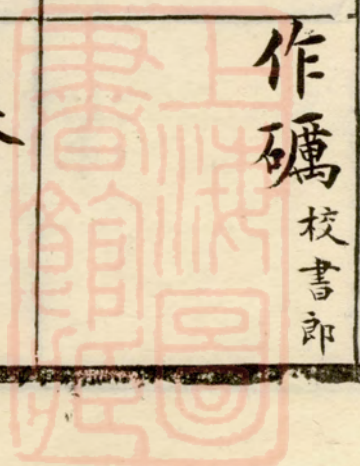 作礪校書郎
上海圖
書館藏